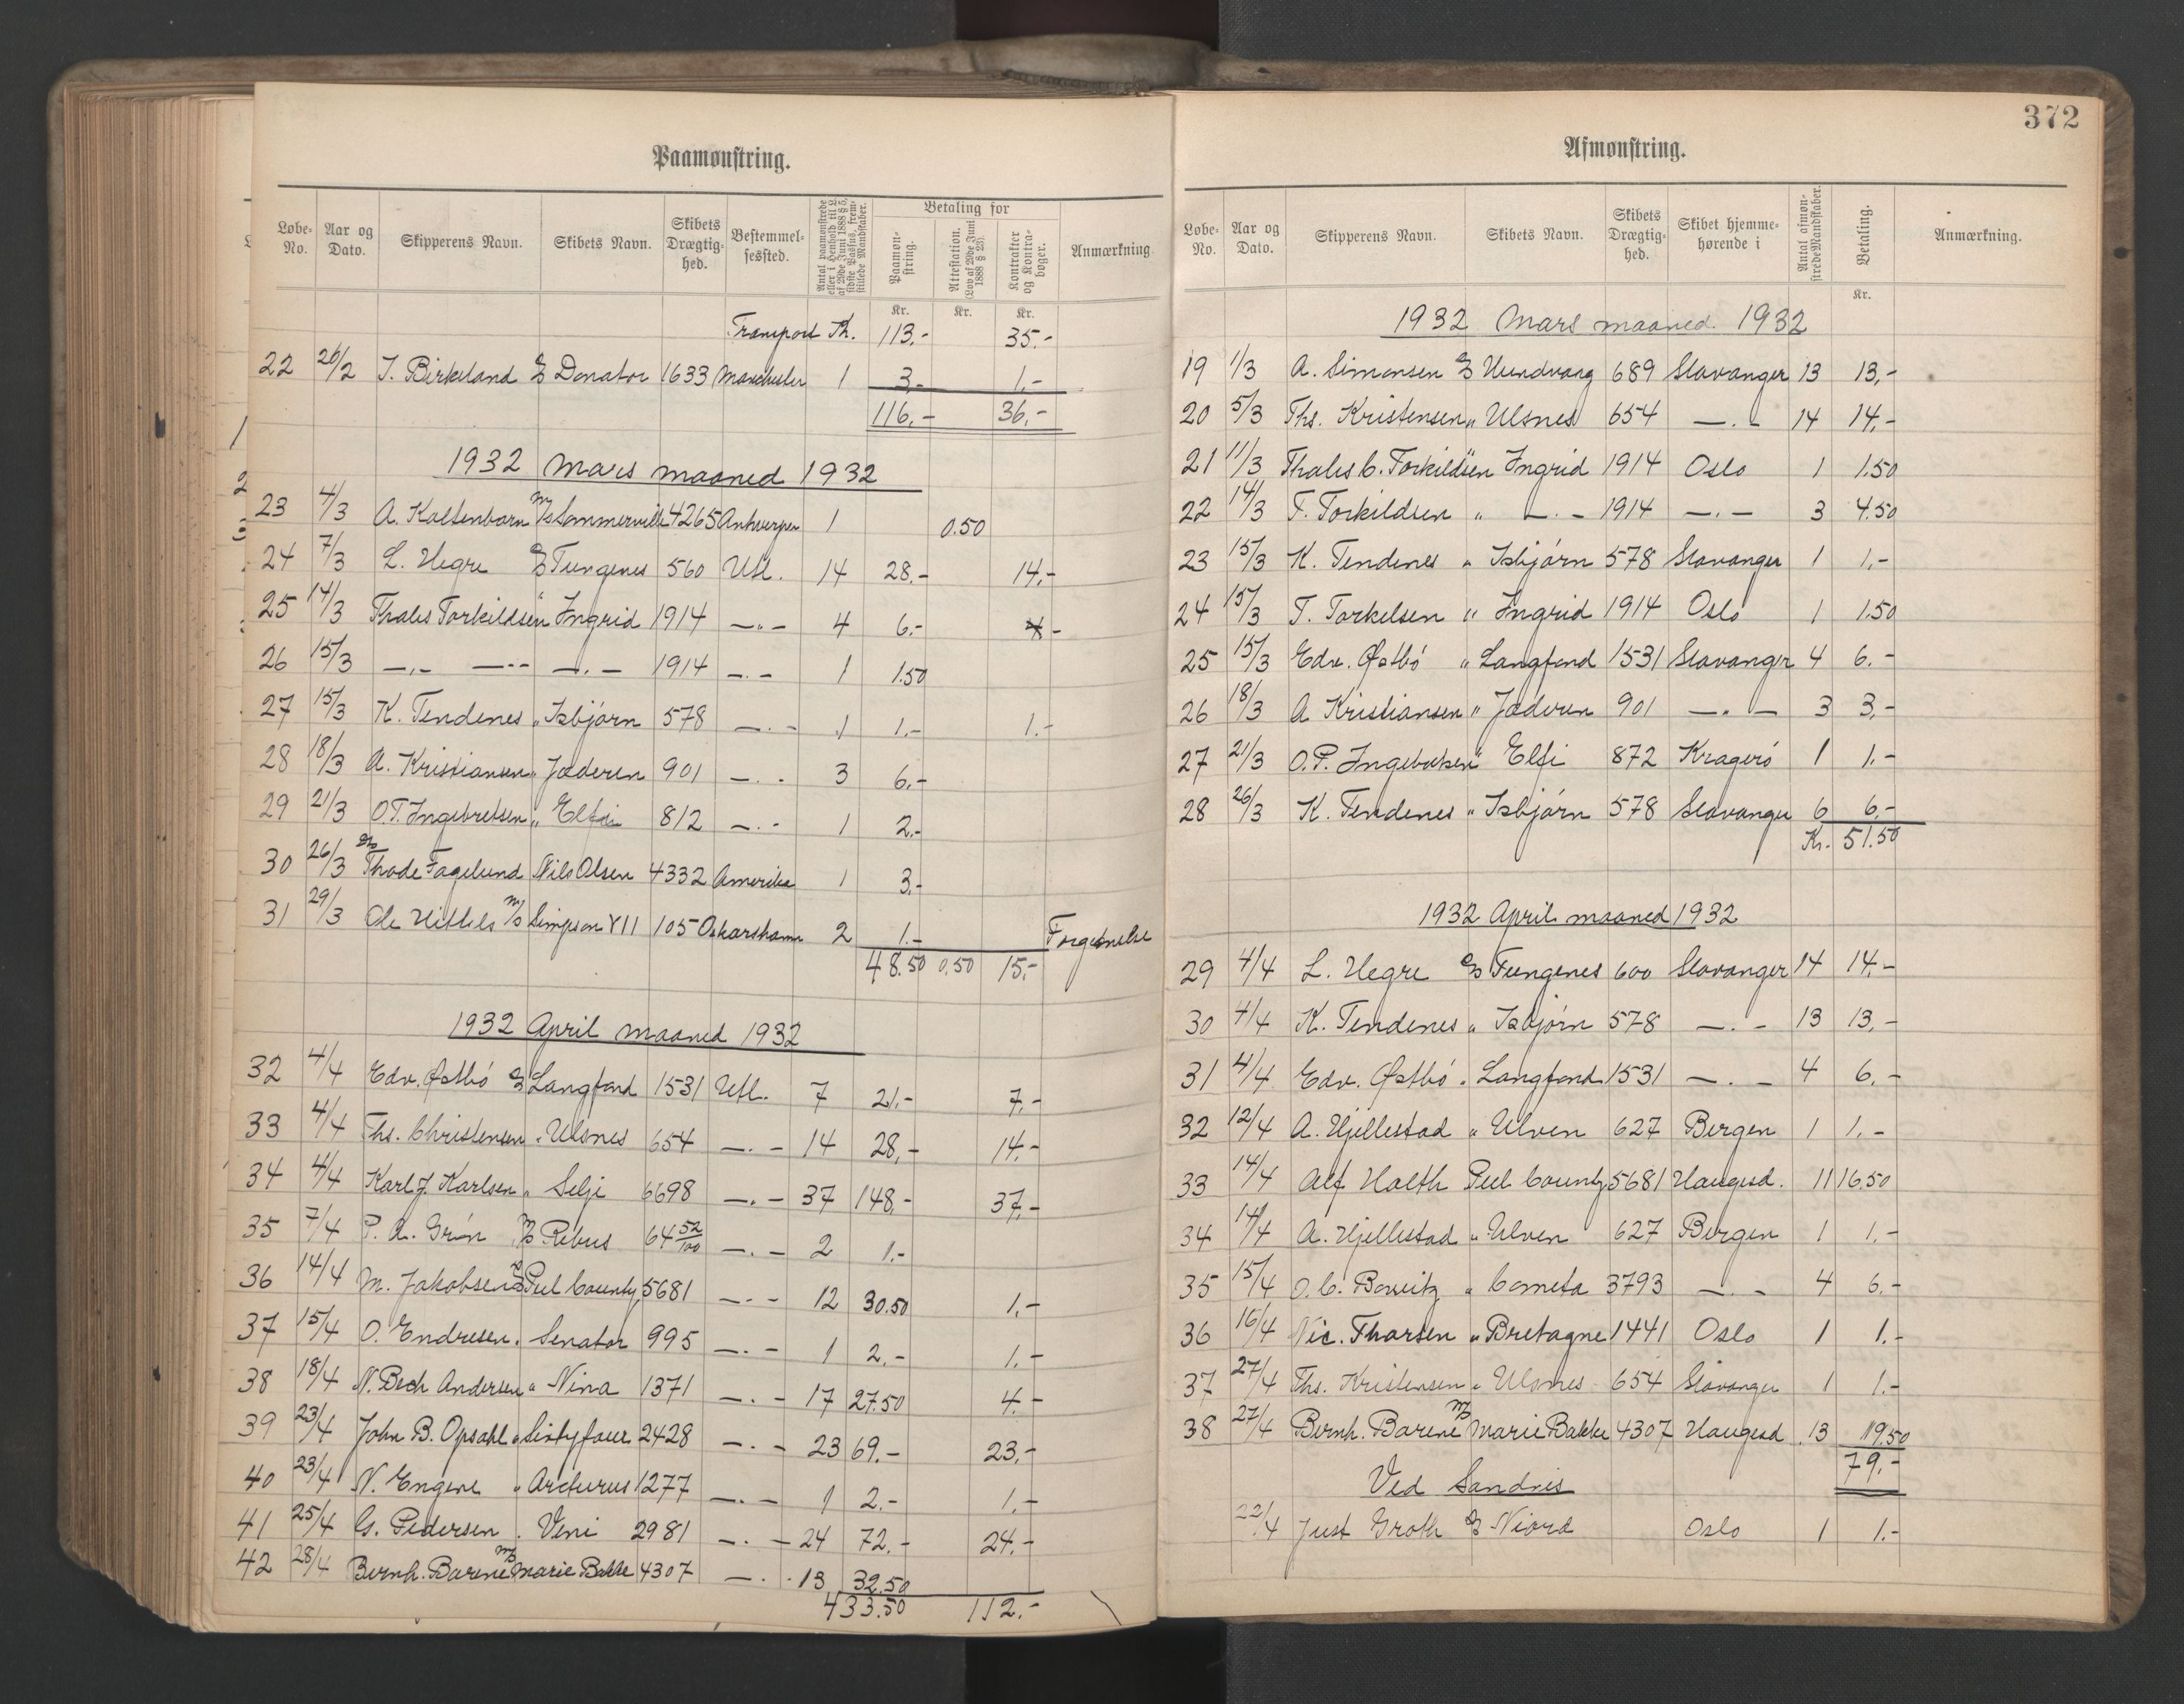 Paamønstring.
Løbe-No. Aar og Dato. Skipperens Navn. Skibets Navn. Skibets Drægtighed. Bestemmelsessted. Antal paamønstrede eller i Henhold til L. af 29de Juni 1888 § 5, sidste Passus, fremstillede Mandskaber. Betaling for Paamønstring. Attestation. (Lov af 29de Juni 1888 § 23). Kontrakter og Kontrabøger. Anmærkning.
Kr. Kr. Kr.
Transport Kr. 113.- 35.-
22 26/2 T. Birkeland S/S Donator 1633 Manchester 1 3.- 1.-
116.- 36.-
1932 Mars maaned 1932
23 4/3 A. Kaltenbarn M/S Sommerville 4265 Antwerpen 1 0.50
24 7/3 L. Hegre S/S Tungenes 560 Utl. 14 28.- 14.-
25 14/3 Thales Torkildsen " Ingrid 1914 —"— 4 6.-
26 15/3 —"— —"— —"— 1914 —"— 1 1.50
27 15/3 K. Tendenes " Isbjørn 578 —"— 1 1.- 1.-
28 18/3 A. Kristiansen " Jæderen 901 —"— 3 6.-
29 21/3 O.T. Ingebretsen " Elfi 812 —"— 1 2.-
30 26/3 S/S Thode Fagelund Nils Olsen 4332 Amerika 1 3.-
31 29/3 Ole M/S Simpson VII 105 Oskarshamn 2 1.-
48.50 0.50 15.-
1932 April maaned 1932
32 4/4 Edv. Østbø S/S Langfond 1531 Utl. 7 21.- 7.-
33 4/4 Ths. Christensen " Ulsnes 654 —"— 14 28.- 14.-
34 4/4 Karl J. Karlsen " Selje 6698 —"— 37 148.- 37.-
35 7/4 P. A. Grøn M/S Rebus 64 52/100 —"— 2 1.-
36 14/4 M. Jakobsen S/S Peel County 5681 —"— 12 30.50 1.-
37 15/4 O. Endresen " Senator 995 —"— 1 2.- 1.-
38 18/4 N. Bech Andersen " Nina 1371 —"— 17 27.50 4.-
39 23/4 John B. Opsahl " Sixtyfour 2428 —"— 23 69.- 23.-
40 23/4 N. Engene " Arcturus 1277 —"— 1 2.- 1.-
41 25/4 G. Pedersen " Veni 2981 —"— 24 72.- 24.-
42 28/4 Bernh. Barene M/S Marie Bakke 4307 —"— 13 32.50
433.50 112.-
372
Afmønstring.
Løbe-No. Aar og Dato. Skipperens Navn. Skibets Navn. Skibets Drægtighed. Skibet hjemmehørende i Antal afmønstrede Mandskaber. Betaling. Anmærkning.
Kr.
1932 Mars maaned 1932
19 1/3 A. Simonsen S/S Hundvaag 689 Stavanger 13 13.-
20 5/3 Ths. Kristensen " Ulsnes 654 —"— 14 14.-
21 11/3 Thales C. Torkildsen Ingrid 1914 Oslo 1 1.50
22 14/3 T. Torkildsen " —"— 1914 —"— 3 4.50
23 15/3 K. Tendenes " Isbjørn 578 Stavanger 1 1.-
24 15/3 T. Torkelsen " Ingrid 1914 Oslo 1 1.50
25 15/3 Edv. Østbø " Langfond 1531 Stavanger 4 6.-
26 18/3 A Kristiansen " Jæderen 901 —"— 3 3.-
27 21/3 O.P. Ingebretsen " Elfi 872 Kragerø 1 1.-
28 26/3 K. Tendenes " Isbjørn 578 Stavanger 6 6.-
Kr. 51.50
1932 April maaned 1932
29 4/4 L. Hegre S/S Tungenes 600 Stavanger 14 14.-
30 4/4 K. Tendenes " Isbjørn 578 —"— 13 13.-
31 4/4 Edv. Østbø " Langfond 1531 —"— 4 6.-
32 12/4 A. Hjellestad " Ulven 627 Bergen 1 1.-
33 14/4 Alf Holth Peel County 5681 Haugesd. 11 16.50
34 14/4 A. Hjellestad " Ulven 627 Bergen 1 1.-
35 15/4 O. C. " Cometa 3793 —"— 4 6.-
36 16/4 Nic. Thorsen " Bretagne 1441 Oslo 1 1.-
37 27/4 Ths. Kristensen " Ulsnes 654 Stavanger 1 1.-
38 27/4 Bernh. Barene M/S Marie Bakke 4307 Haugesd 13 19.50
79.-
Ved Sandnes
22/4 Just Groth S/S Njord Oslo 1 1.-